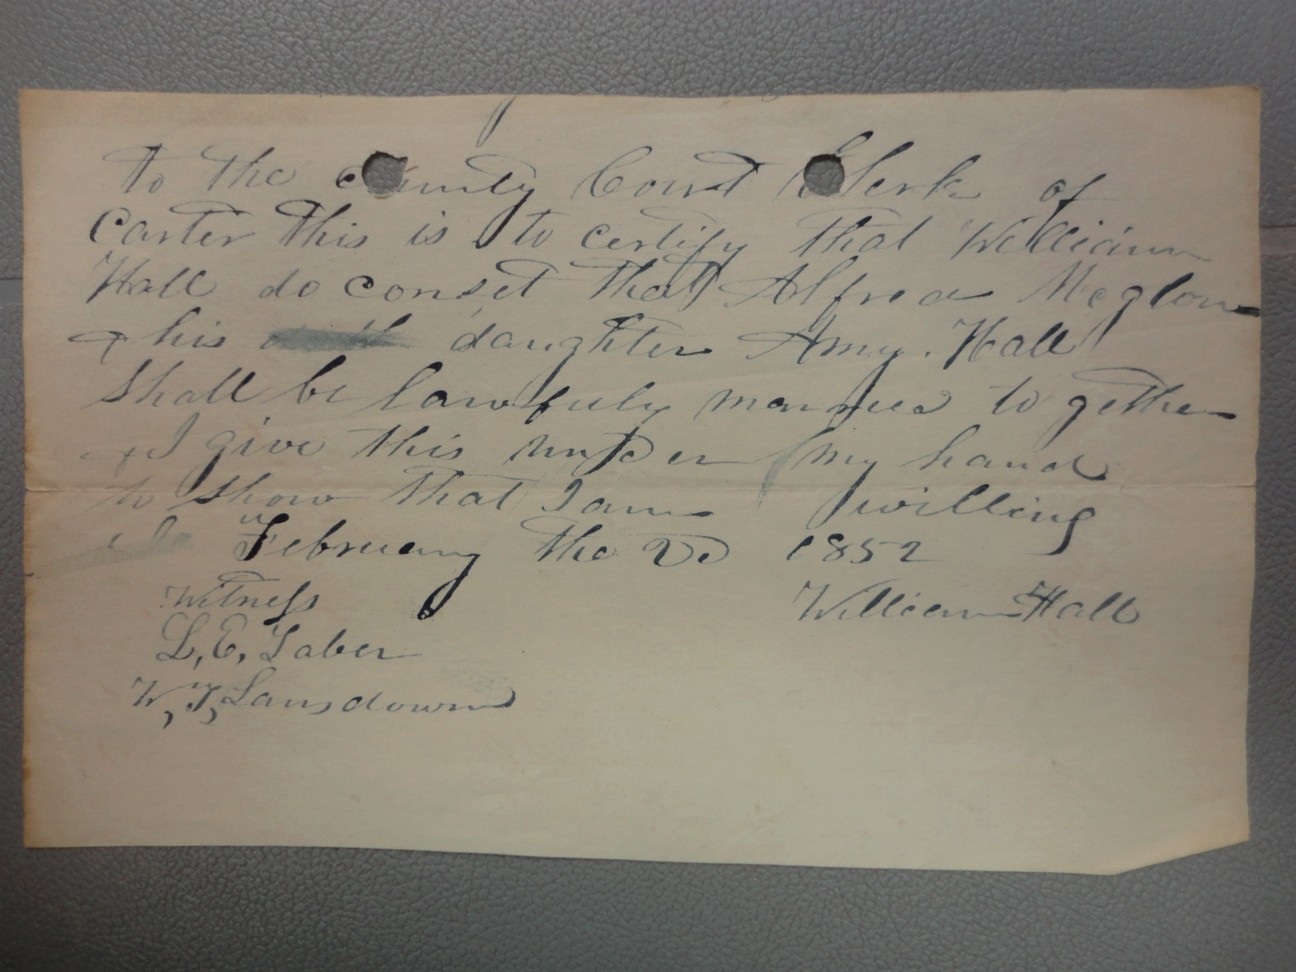 to the county Court Clerk of
Carter this is to certify that William
Hall do conset that Alfred Mcglone
& his daughter Amy. Hall
Shall be lawfuly married to gether
& I give this under my hand
to show that I am willing
February the 2d 1852
Witness William Hall
L, E, Taber
W, T, Lansdown